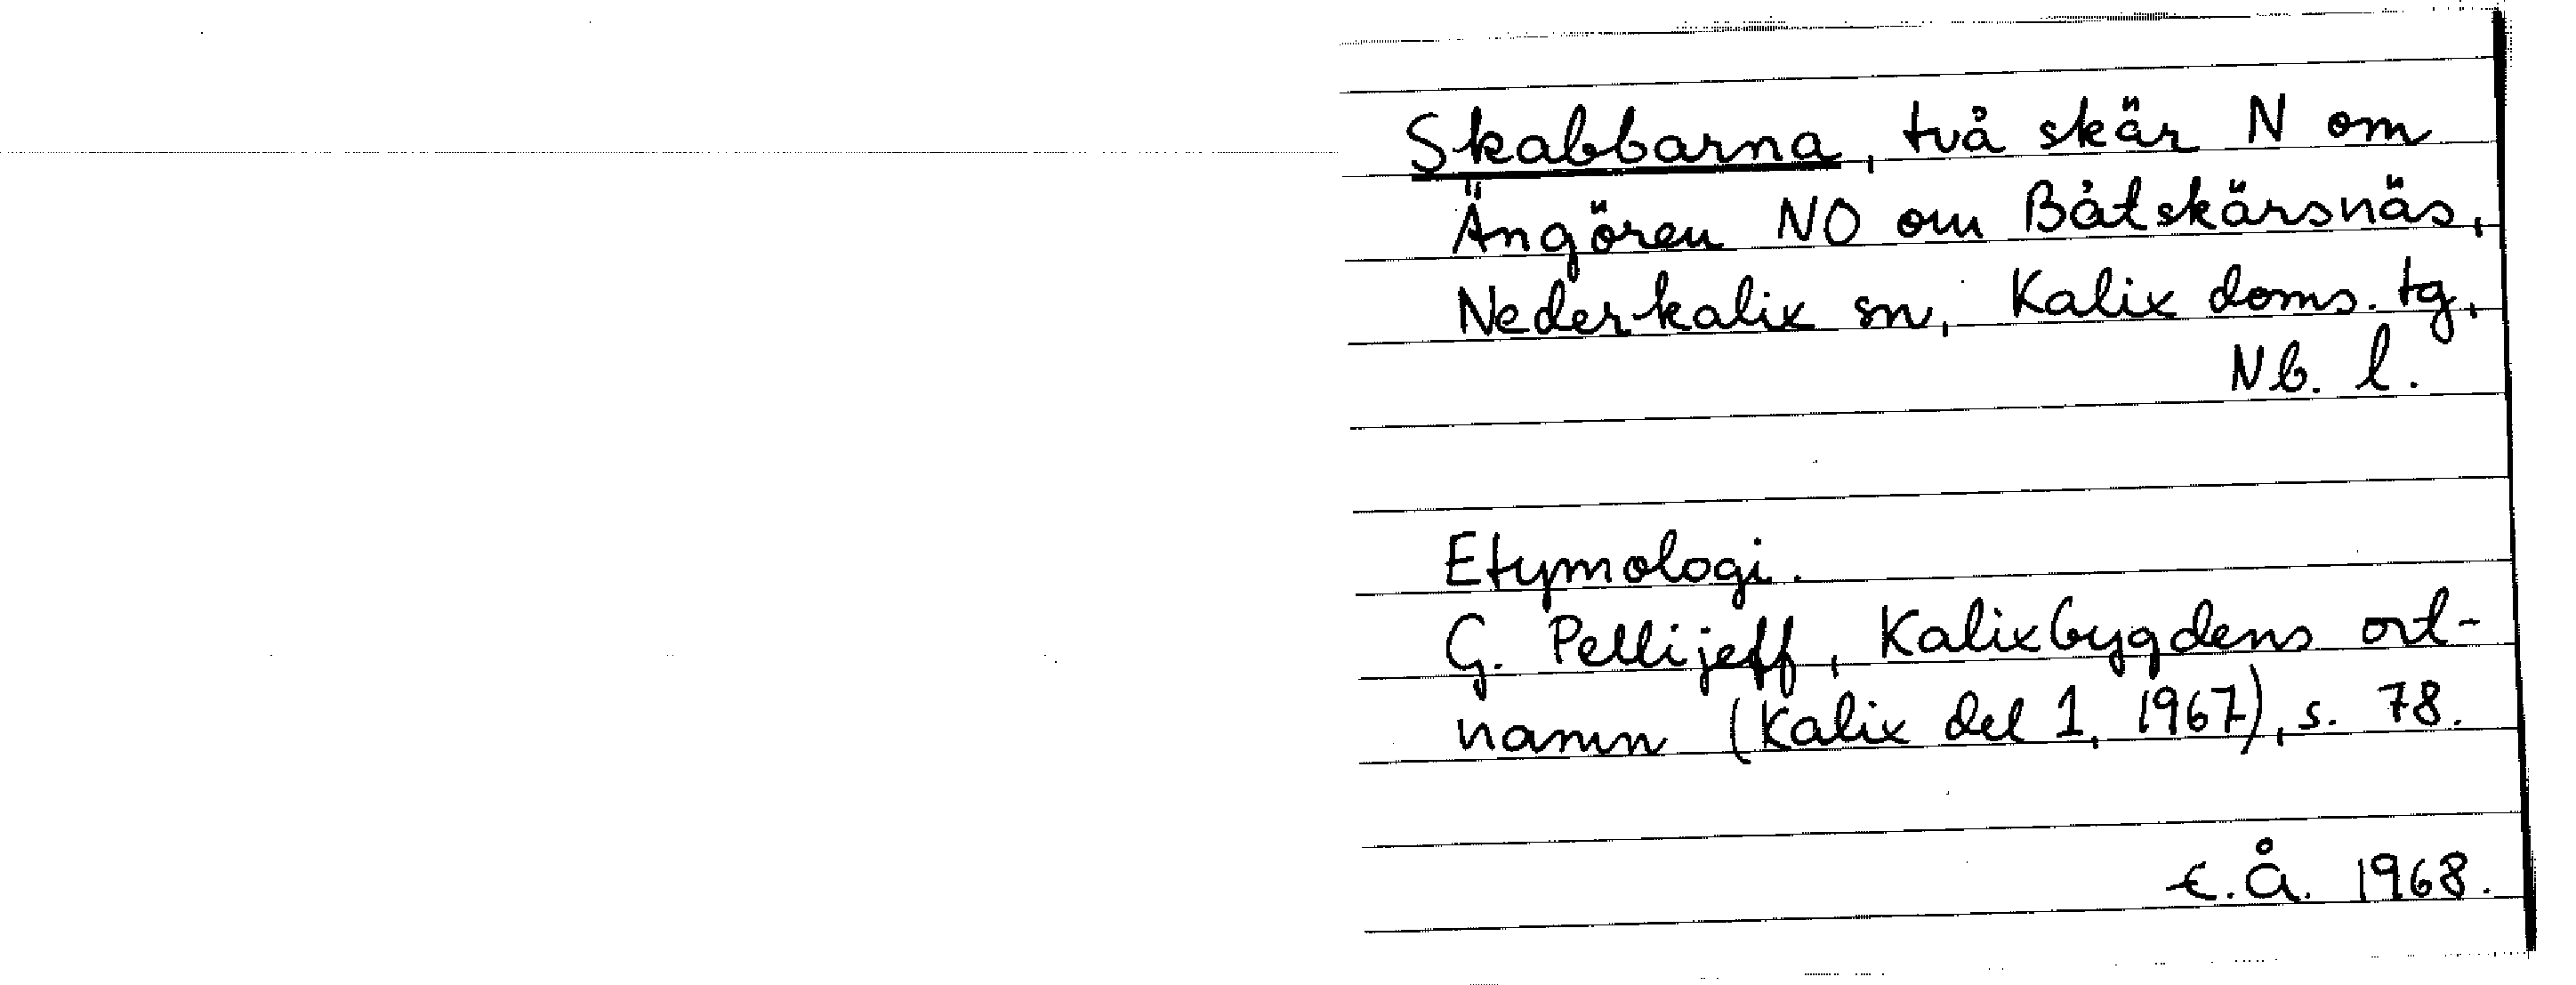 Skabbarna, två skär N om
Ängören NO om Båtskärsnäs,
Nederkalix sn, Kalix doms. tg,
Nb. l.
Etymologi.
G. Pellijeff, Kalixbygdens ort-
namn (Kalix del 1, 1967), s. 78.
E.Å. 1968.